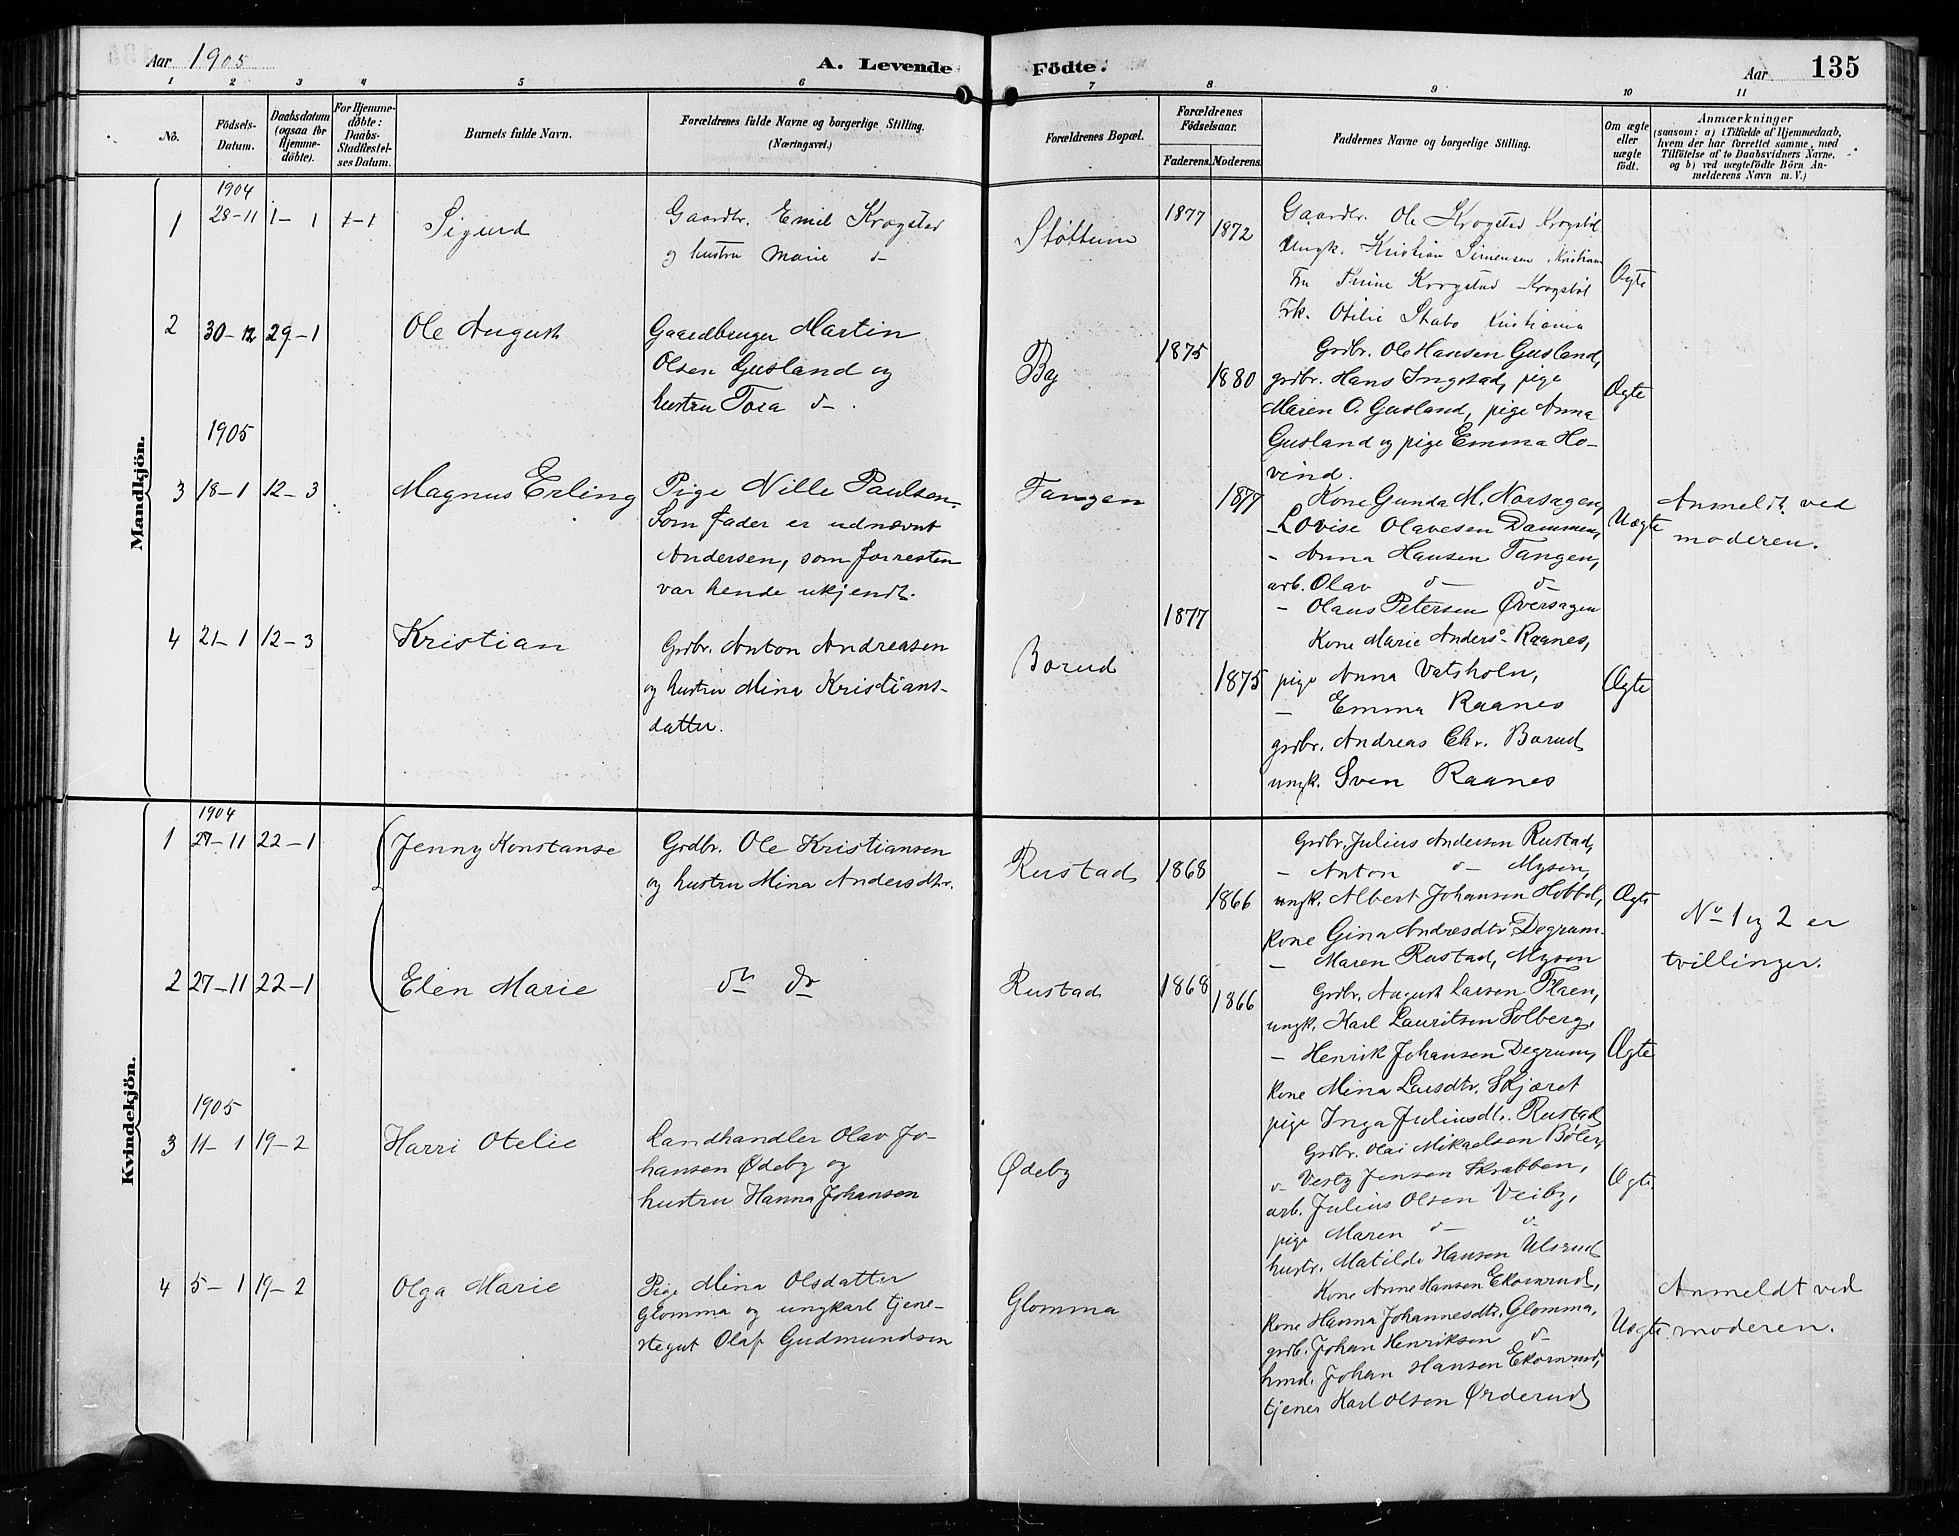 Aar 1905
A. Levende Födte.
Aar 135
1 2 3 4 5 6 7 8 9 10 11
No.
Födsels-Datum.
Daabsdatum (ogsaa för Hjemme-döbte).
For Hjemme-döbte: Daabs-Stadfæstelses Datum.
Barnets fulde Navn.
Forældrenes fulde Navne og borgerlige Stilling.
(Næringsvei.)
Forældrenes Bopæl.
Forældrenes Födselsaar.
Faderens. Moderens.
Faddernes Navne og borgerlige Stilling.
Om ægte eller uægte födt.
Anmærkninger
(saasom: a) i Tilfælde af Hjemmedaab,
hvem der har forrettet samme, med
Tilföielse af to Daabsvidners Navne,
og b) ved uægtefödte Börn An-
melderens Navn m. V.)
Mandkjön.
1904
1 28-11 1-1 +-+ Sigurd
Gaardbr. Emil Krogstad
og hustru Marie d-
Støttum
1877 1872
Gaardbr. Ole Krogstad Krogsböl
Ungk. Kristian Simensen Kristiania
Fru Trine Krogstad Krogsböl
Frk. Otilie Stabo Kristiania
Ægte
2 30-12 29-1 Ole August
Gaardbruger Martin
Olsen Gusland og
hustru Tora d-.
By
1875 1880
Grdbr. Ole Hansen Gusland,
grdbr. Hans Ingstad, pige
Maren O. Gusland, pige Anna
Gusland og pige Emma Ho-
vind.
Ægte
1905
3 18-1 12-3 Magnus Erling
Pige Nille Paulsen.
Som fader er udnævnt
Andersen, som forresten
var hende ukjendt.
Tangen
1877
Kone Gunda M. Norsagen,
- Lovise Olavesen Dammen,
- Anna Hansen Tangen,
arb. Olav d- d-
- Olaus Petersen Øversagen
Uægte
Anmeldt ved
moderen.
4 21-1 12-3 Kristian
Grdbr. Anton Andreasen
og hustru Mina Kristians-
datter.
Borud
1877 1875
Kone Marie Anders°- Raanes,
pige Anna Vatsholn,
- Emma Raanes
grdbr. Andreas Chr. Borud
ungk. Sven Raanes
Ægte
Kvindekjön.
1904
1 27-11 22-1 Jenny Konstanse
Grdbr. Ole Kristiansen
og hustru Mina Andersdtr.
Rustad
1868 1866
Grdbr. Julius Andersen Rustad,
- Anton d- Mysen,
ungk. Albert Johansen Hobbel,
kone Gina Andresdtr. Degrum
- Maren Rustad, Mysen
Ægte
No 1 og 2 er
tvillinger.
2 27-11 22-1 Elen Marie
do do
Rustad
1868 1866
Grdbr. August Larsen Flaen,
ungk. Karl Lauritsen Solberg,
- Henrik Johansen Degrum,
kone Mina Larsdtr. Skjæret
pige Inga Juliusdtr. Rustad
Ægte
1905
3 11-1 19-2 Harri Otelie
Landhandler Olav Jo-
hansen Ødeby og
hustru Hanna Johansen
Ødeby
Grdbr. Olai Mikaelsen Böler,
d- Vestby Jensen Skrabben,
arb. Julius Olsen Veiby,
pige Maren d- d-
hustr. Matilde Hansen Ulsrud
Ægte
4 5-1 19-2 Olga Marie
Pige Mina Olsdatter
Glomma og ungkarl tjene-
stegut Olaf Gudmundsen
Glomma
Kone Anne Hansen Ekornrud,
kone Hanna Johannesdtr. Glomma,
grdb. Johan Henriksen d-
hmd. Johan Hansen Ekornrud,
tjener Karl Olsen Ørderud
Uægte.
Anmeldt ved
moderen.